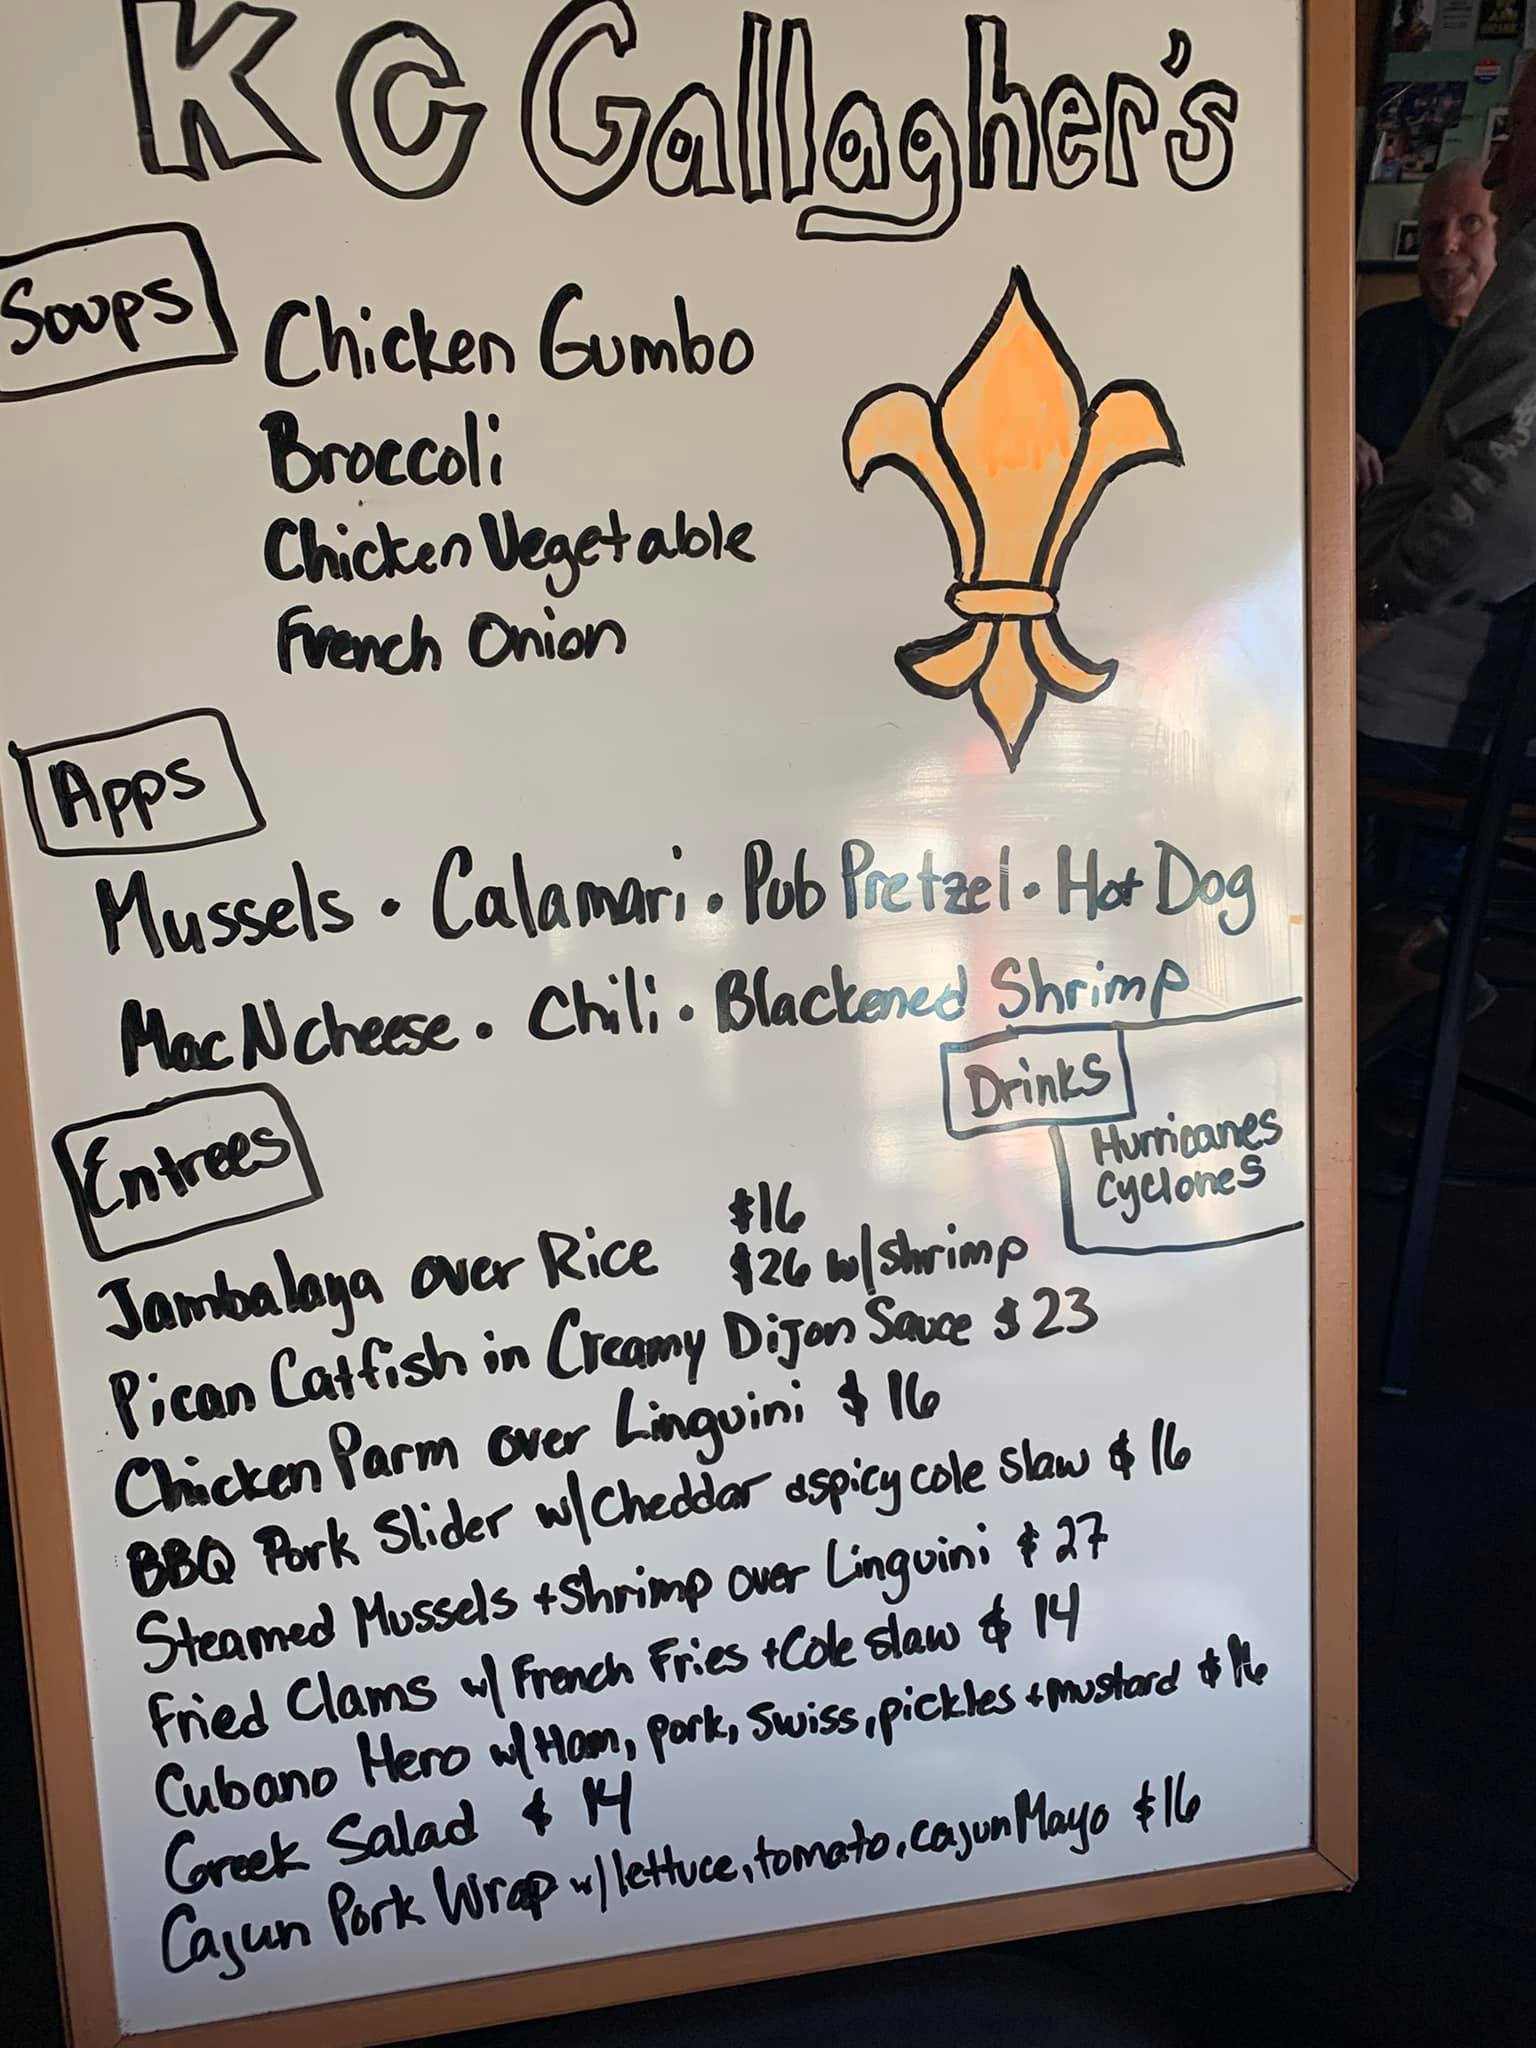 KC Gallagher's
Soups
Chicken Gumbo
Broccoli
Chicken Vegetable
French Onion
Apps
Mussels • Calamari • Pub Pretzel • Hot Dog
Mac N cheese • Chili • Blackened Shrimp
Drinks
Hurricanes
Cyclones
Entrees
Jambalaya over Rice $16
$26 w/shrimp
Pican Catfish in Creamy Dijon Sauce $23
Chicken Parm over Linguini $16
BBQ Pork Slider w/Cheddar & spicy cole slaw $16
Steamed Mussels + Shrimp over Linguini $27
Fried Clams w/ French Fries + Cole slaw $14
Cubano Hero w/ Ham, pork, swiss, pickles + mustard $16
Greek Salad $14
Cajun Pork Wrap w/ lettuce, tomato, cajun Mayo $16